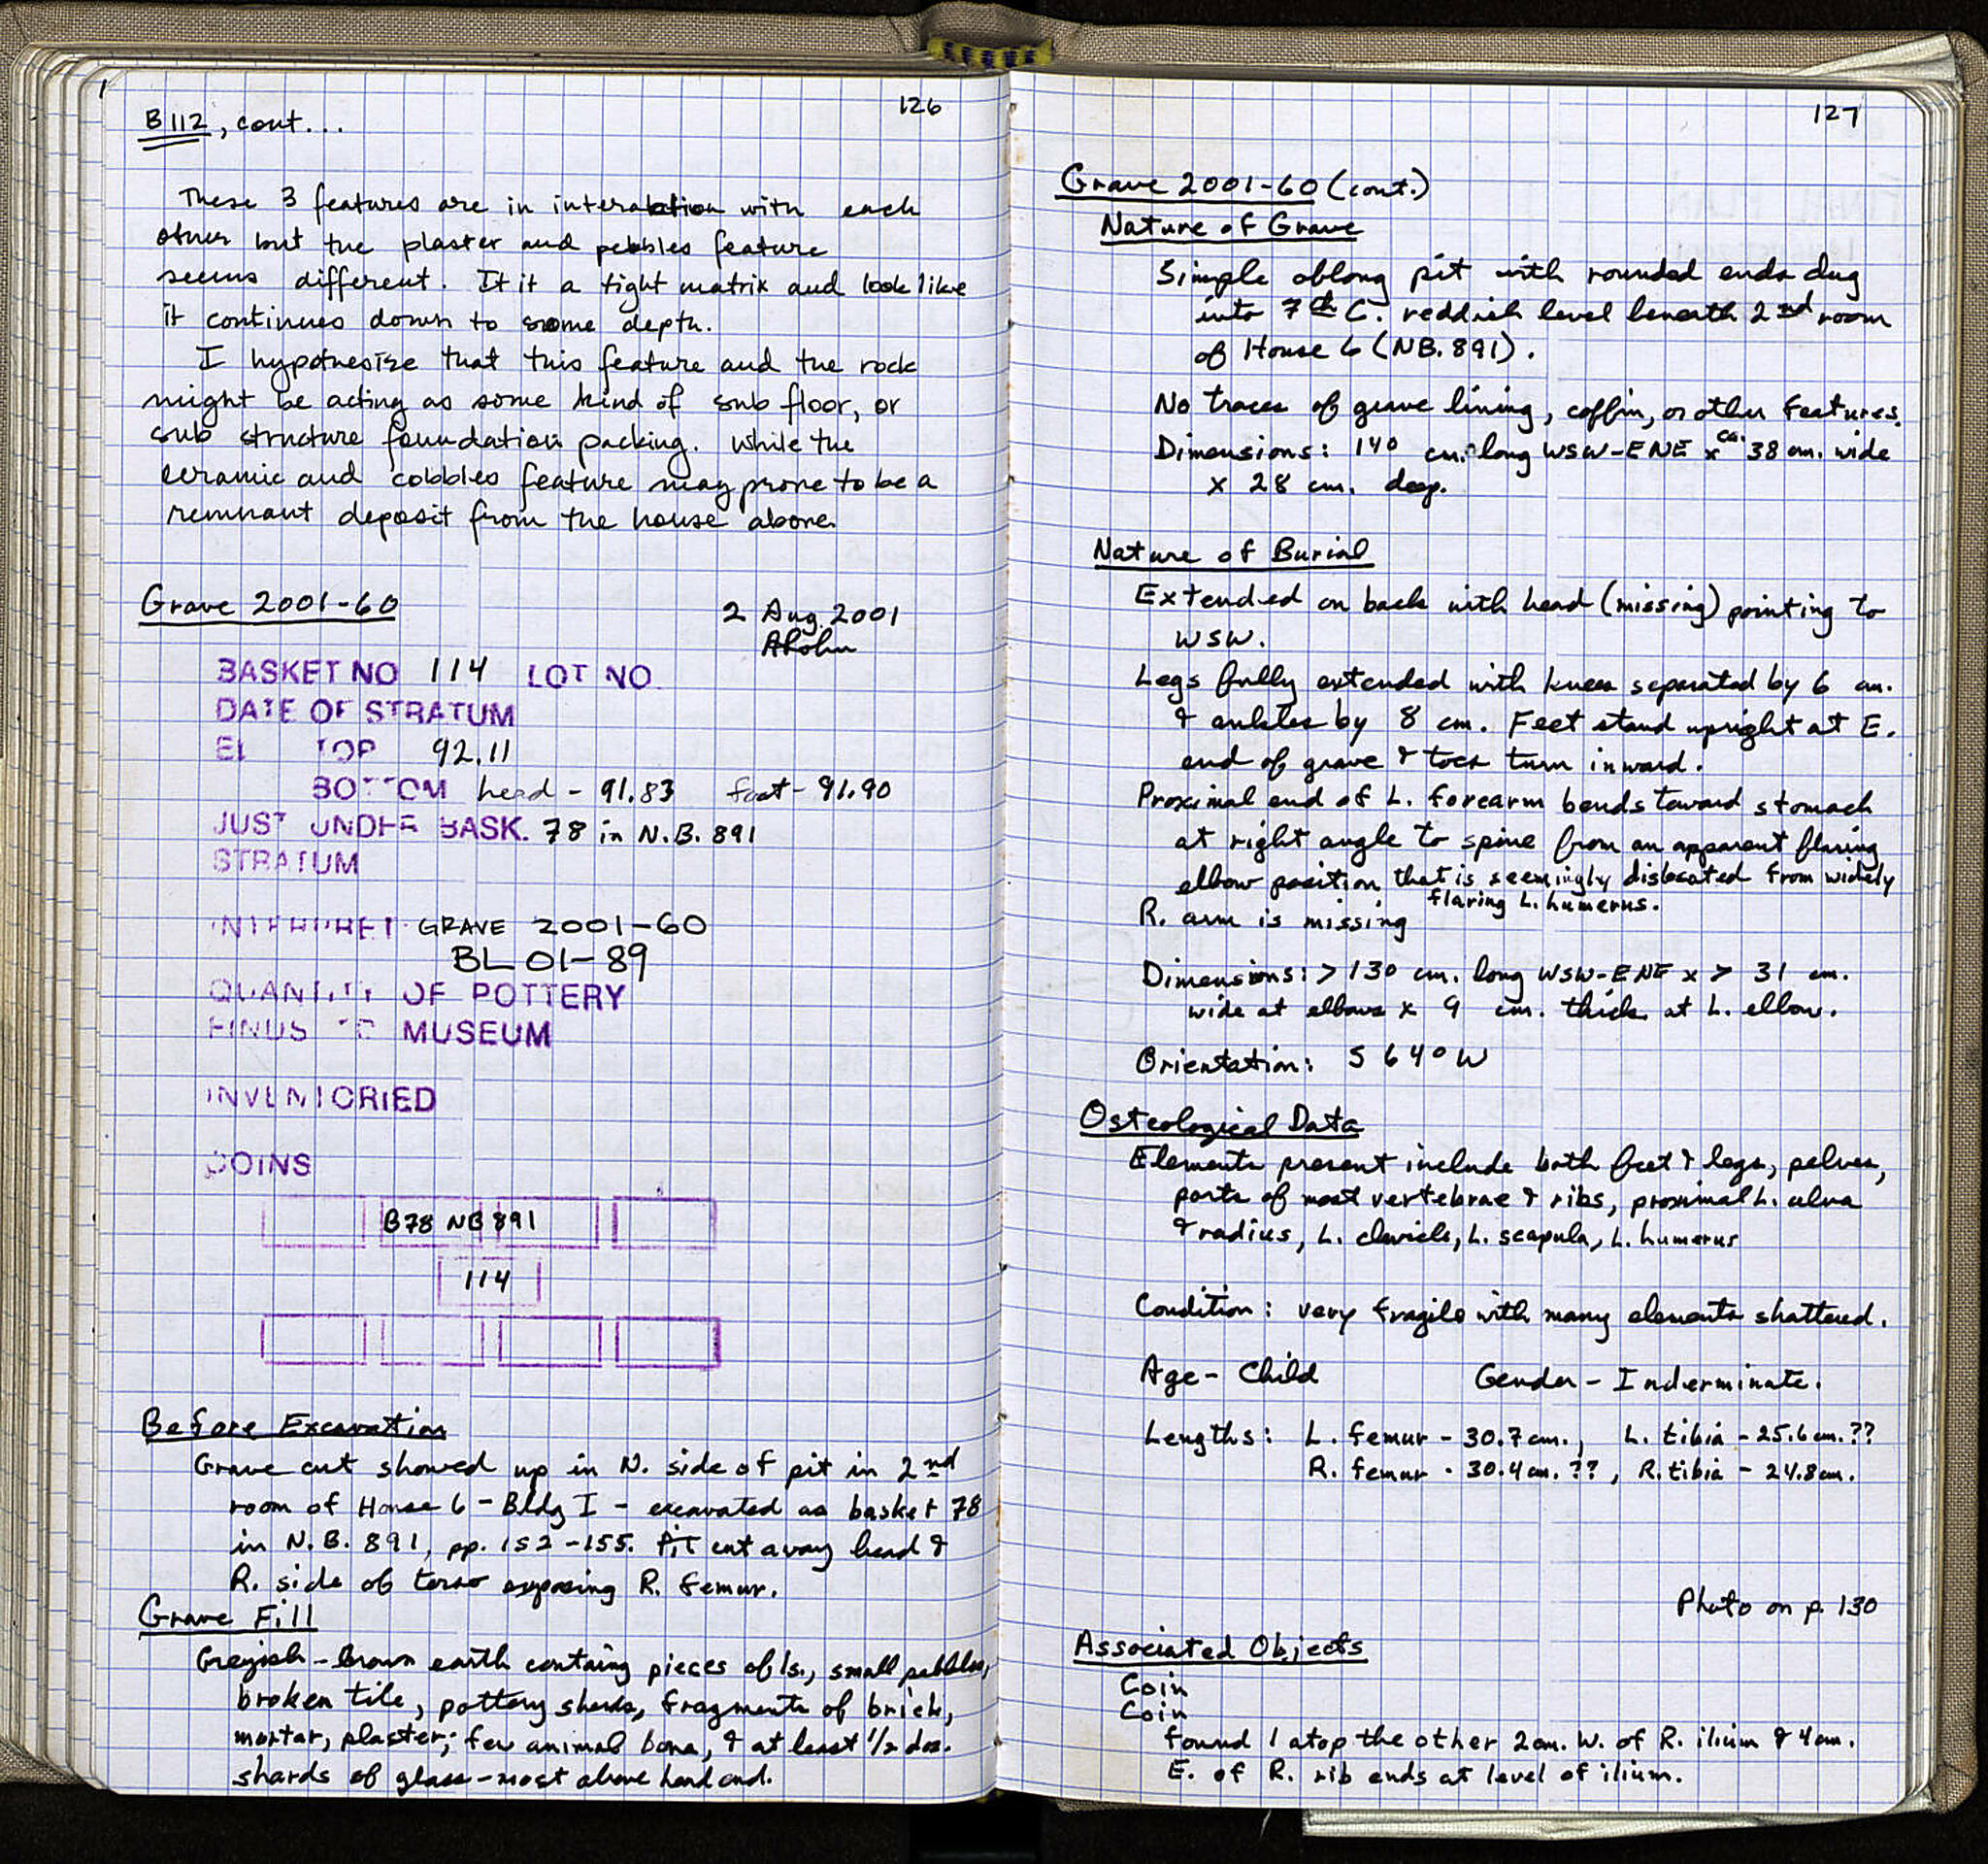 126
B112, cont...
These 3 features are in interaction with each
other but the plaster and pebbles feature
seems different. It it a tight matrix and look like
it continues down to some depth.
I hypothesize that this feature and the rock
might be acting as some kind of sub floor, or
sub structure foundation packing. While the
ceramic and cobbles feature may prove to be a
remnant deposit from the house above.
Grave 2001-60
2 Aug. 2001
BASKET NO 114 LOT NO.
DATE OF STRATUM
EL TOP 92.11
BOTTOM head - 91.83 foot - 91.90
JUST UNDER BASK. 78 in N.B. 891
STRATUM
INTERPRET. GRAVE 2001-60
BL 01-89
QUANTITY OF POTTERY
FINDS TO MUSEUM
INVENTORIED
COINS
B78 NB 891
114
Before Excavation
Grave cut showed up in N. side of pit in 2nd
room of House 6 - Bldg I - excavated as basket 78
in N.B. 891, pp. 152-155. Pit cut away head &
R. side of torso exposing R. femur.
Grave Fill
Greyish-brown earth containg pieces of ls., small pebbles,
broken tile, pottery sherds, fragments of brick,
mortar, plaster; few animal bone, & at least 1/2 doz.
shards of glass - most above head end.
127
Grave 2001-60 (cont.)
Nature of Grave
Simple oblong pit with rounded ends dug
into 7th C. reddish level beneath 2nd room
of House 6 (NB. 891).
No traces of grave lining, coffin, or other features.
Dimensions: 140 cm. long WSW-ENE x ca. 38 cm. wide
x 28 cm. deep.
Nature of Burial
Extended on back with head (missing) pointing to
WSW.
Legs fully extended with knees separated by 6 cm.
& ankles by 8 cm. Feet stand upright at E.
end of grave & toes turn inward.
Proximal end of L. forearm bends toward stomach
at right angle to spine from an apparent flaring
elbow position that is seemingly dislocated from widely
flaring L. humerus.
R. arm is missing
Dimensions: > 130 cm. long WSW-ENE x > 31 cm.
wide at elbows x 9 cm. thick at L. elbow.
Orientation: S 64° W
Osteological Data
Elements present include both feet & legs, pelves,
parts of most vertebrae & ribs, proximal L. ulna
& radius, L. clavicle, L. scapula, L. humerus
Condition: very fragile with many elements shattered.
Age - Child Gender - Inderminate.
Lengths: L. femur - 30.7 cm., L. tibia - 25.6 cm. ??
R. femur - 30.4 cm. ??, R. tibia - 24.8 cm.
Photo on p. 130
Associated Objects
Coin
Coin
found 1 atop the other 2 cm. W. of R. ilium & 4 cm.
E. of R. rib ends at level of ilium.